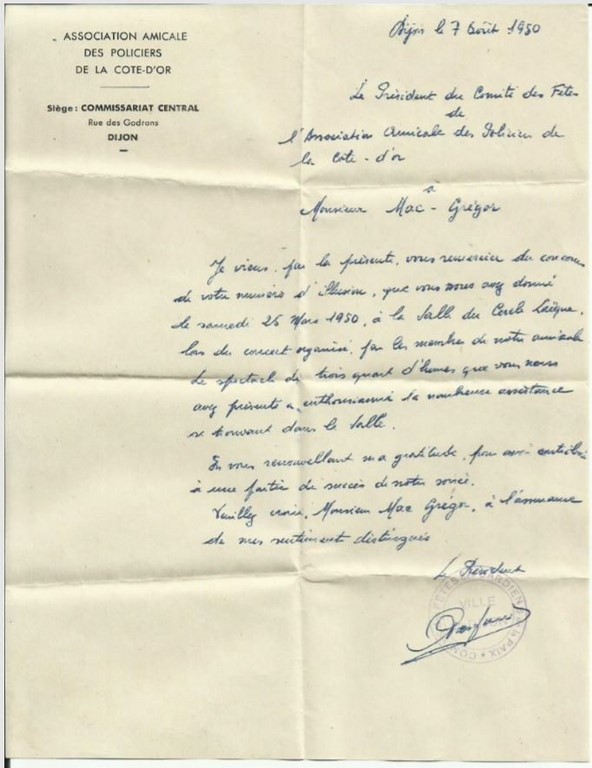 ASSOCIATION AMICALE
DES POLICIERS
DE LA COTE-D'OR
Siège : COMMISSARIAT CENTRAL
Rue des Godrans
DIJON
Dijon le 7 Août 1950
Le Président du Comité des Fêtes
de
l'Association Amicale des Policiers de
la Côte-d'or
à
Monsieur Mac-Grégor
Je viens, par la présente, vous remercier du concours
de votre numéro d'illusion, que vous nous avez donné
le samedi 25 Mars 1950, à la Salle du Cercle Laïque,
lors du concert organisé, par les membres de notre amicale
Le spectacle de trois quart d'heures que vous nous
avez présenté a enthousiasmé la nombreuse assistance
se trouvant dans la Salle.
En vous renouvellant ma gratitude, pour avoir contribué
à une partie du succès de notre soirée.
Veuillez croire, Monsieur Mac Grégor, à l'assurance
de mes sentiment distingués
Le Président
FETES GARDIENS DE LA PAIX
VILLE